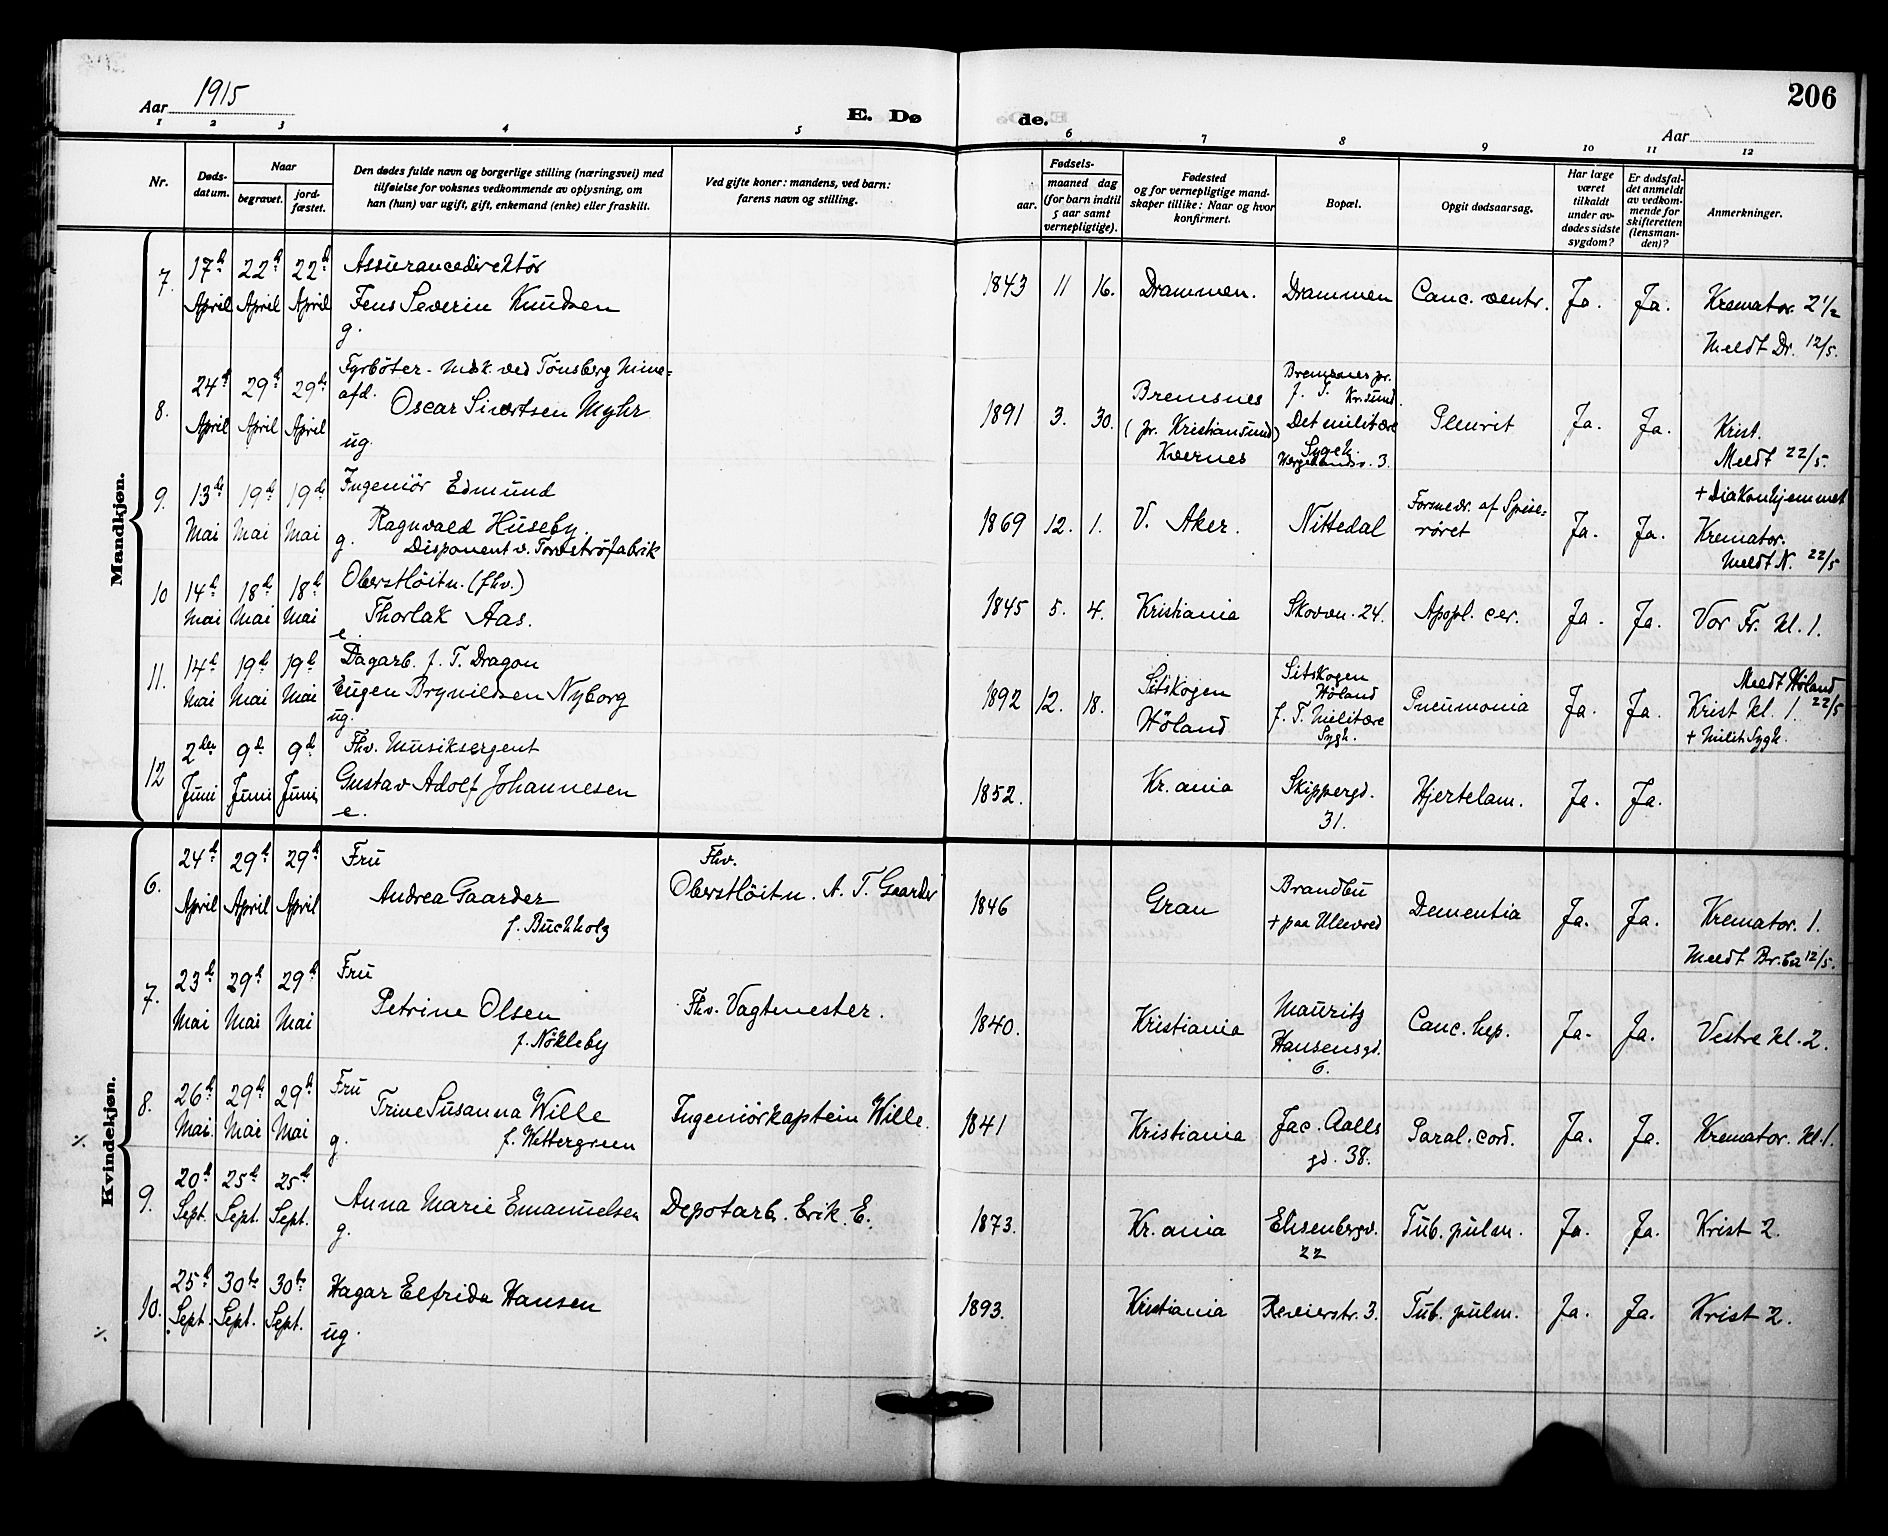 Aar 1915
E. Dø
de.
206
Aar
1 2 3 4 5 6 7 8 9 10 11 12
Nr.
Døds-
datum.
Naar
begravet.
jord-
fæstet.
Den dødes fulde navn og borgerlige stilling (næringsvei) med
tilføielse for voksnes vedkommende av oplysning, om
han (hun) var ugift, gift, enkemand (enke) eller fraskilt.
Ved gifte koner: mandens, ved barn:
farens navn og stilling.
Fødsels-
aar.
maaned dag
(for barn indtil
5 aar samt
vernepligtige).
Fødested
og for vernepligtige mand-
skaper tillike: Naar og hvor
konfirmert.
Bopæl.
Opgit dødsaarsag.
Har læge
været
tilkaldt
under av-
dødes sidste
sygdom?
Er dødsfal-
det anmeldt
av vedkom-
mende for
skifteretten
(lensman-
den)?
Anmerkninger.
Mandkjøn.
7. 17d April 22d April 22d April
Assurancedirektör
Jens Severin Knudsen
g.
1843 11 16. Drammen. Drammen Canc. ventr. Ja. Ja. Kremator. 2 1/2
Meldt Dr. 12/5.
8. 24d April 29d April 29d April
Fyrböter - mdsk. ved Tönsberg Mine=
afd.
Oscar Sivertsen Myhr
ug.
1891 3. 30. Bremsnes
(pr. Kristiansund)
Kvernes
Bremsnes pr.
f. T. Kr.sund.
Det militære
Sygeh.
3.
Pleurit Ja. Ja. Krist.
Meldt 22/5.
9. 13de Mai 19d Mai 19de Mai
Ingeniör Edmund
Ragnvald Huseby.
g. Disponent v. Torvströfabrik
1869 12. 1. V. Aker. Nittedal
Forsnevr. af Spise=
röret
Ja. Ja.
+ Diakonhjemmet
Kremator.
Meldt N. 22/5
10 14d Mai 18d Mai 18d Mai
Oberstlöitn. (fhv.)
Thorlak Aas.
e.
1845 5. 4. Kristiania Skovvn. 24. Apopl. cer. Ja. Ja. Vor Fr. kl. 1.
11. 14d Mai 19d Mai 19d Mai
Dagarb. f. T. Dragon
Eugen Brynildsen Nyborg
ug.
1892 12. 18. Sitskogen
Höland
Sitskogen
Höland
f. T. Militære
Sygh.
Pneumonia Ja. Ja.
Meldt Höland
22/5
Krist kl. 1.
+ Milit Sygh.
12 2den Juni 9d Juni 9d Juni
Fhv. Musiksergent
Gustav Adolf Johannesen
e.
1852. Kr.ania Skippergd.
31.
Hjertelam. Ja. Ja.
Kvindekjøn.
6. 24d April 29d April 29d April
Fru
Andrea Gaarder
f. Buchholz
Fhv.
Oberstlöitn. A. T. Gaarder
1846 Gran Brandbu
+ paa Ullevred
Dementia Ja. Ja. Kremator. 1.
Meldt Br.bu 12/5.
7. 23d Mai 29d Mai 29d Mai
Fru
Petrine Olsen
f. Nökleby
Fhv. Vagtmester.
1840. Kristiania Mauritz
Hansensgd.
6.
Canc. hep. Ja. Ja. Vestre kl. 2.
8. 26d Mai. 29d Mai 29d Mai
Fru
Trine Susanna Wille
g. f. Wettergreen
Ingeniörkaptein Wille.
1841 Kristiania Jac. Aalls
gd. 38.
Paral. cord. Ja. Ja. Kremator. kl. 1.
9. 20d Sept. 25d Sept. 25d Sept.
Anna Marie Emanuelsen
g.
Depotarb. Erik E.
1873. Kr.ania Ensenbergv.
22
Tub. pulm. Ja. Ja. Krist 2.
10. 25d Sept. 30te Sept. 30te Sept.
Hagar Elfrida Hansen
ug.
1893. Kristiania Revierstr. 3. Tub. pulm. Ja. Ja. Krist 2.